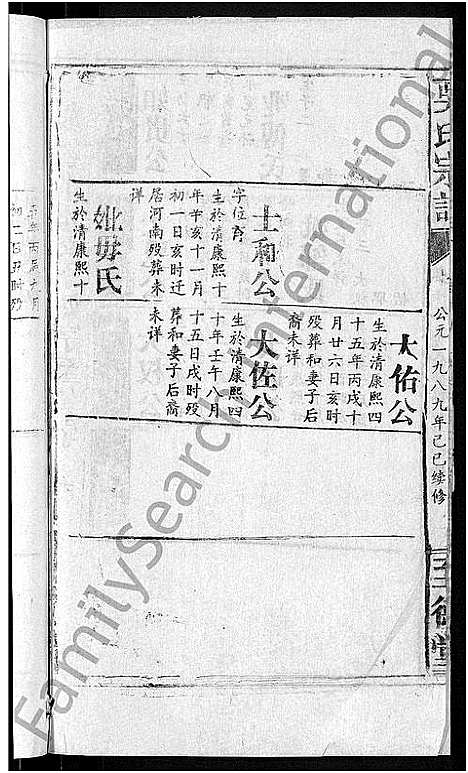 吴氏宗谱
公元一九八九年己巳续修
至德堂
士和公
字位育
生於清康熙十
年辛亥十一月
初一日亥时迁
居河南殁葬未
详
妣毋氏
生於清康熙十
大佑公
生於清康熙四
十五年丙戌十
月廿六日亥时
殁葬和妻子后
裔未详
大佐公
生於清康熙四
十年壬午八月
十五日戌时殁
葬和妻子后裔
未详
FamilySearch International